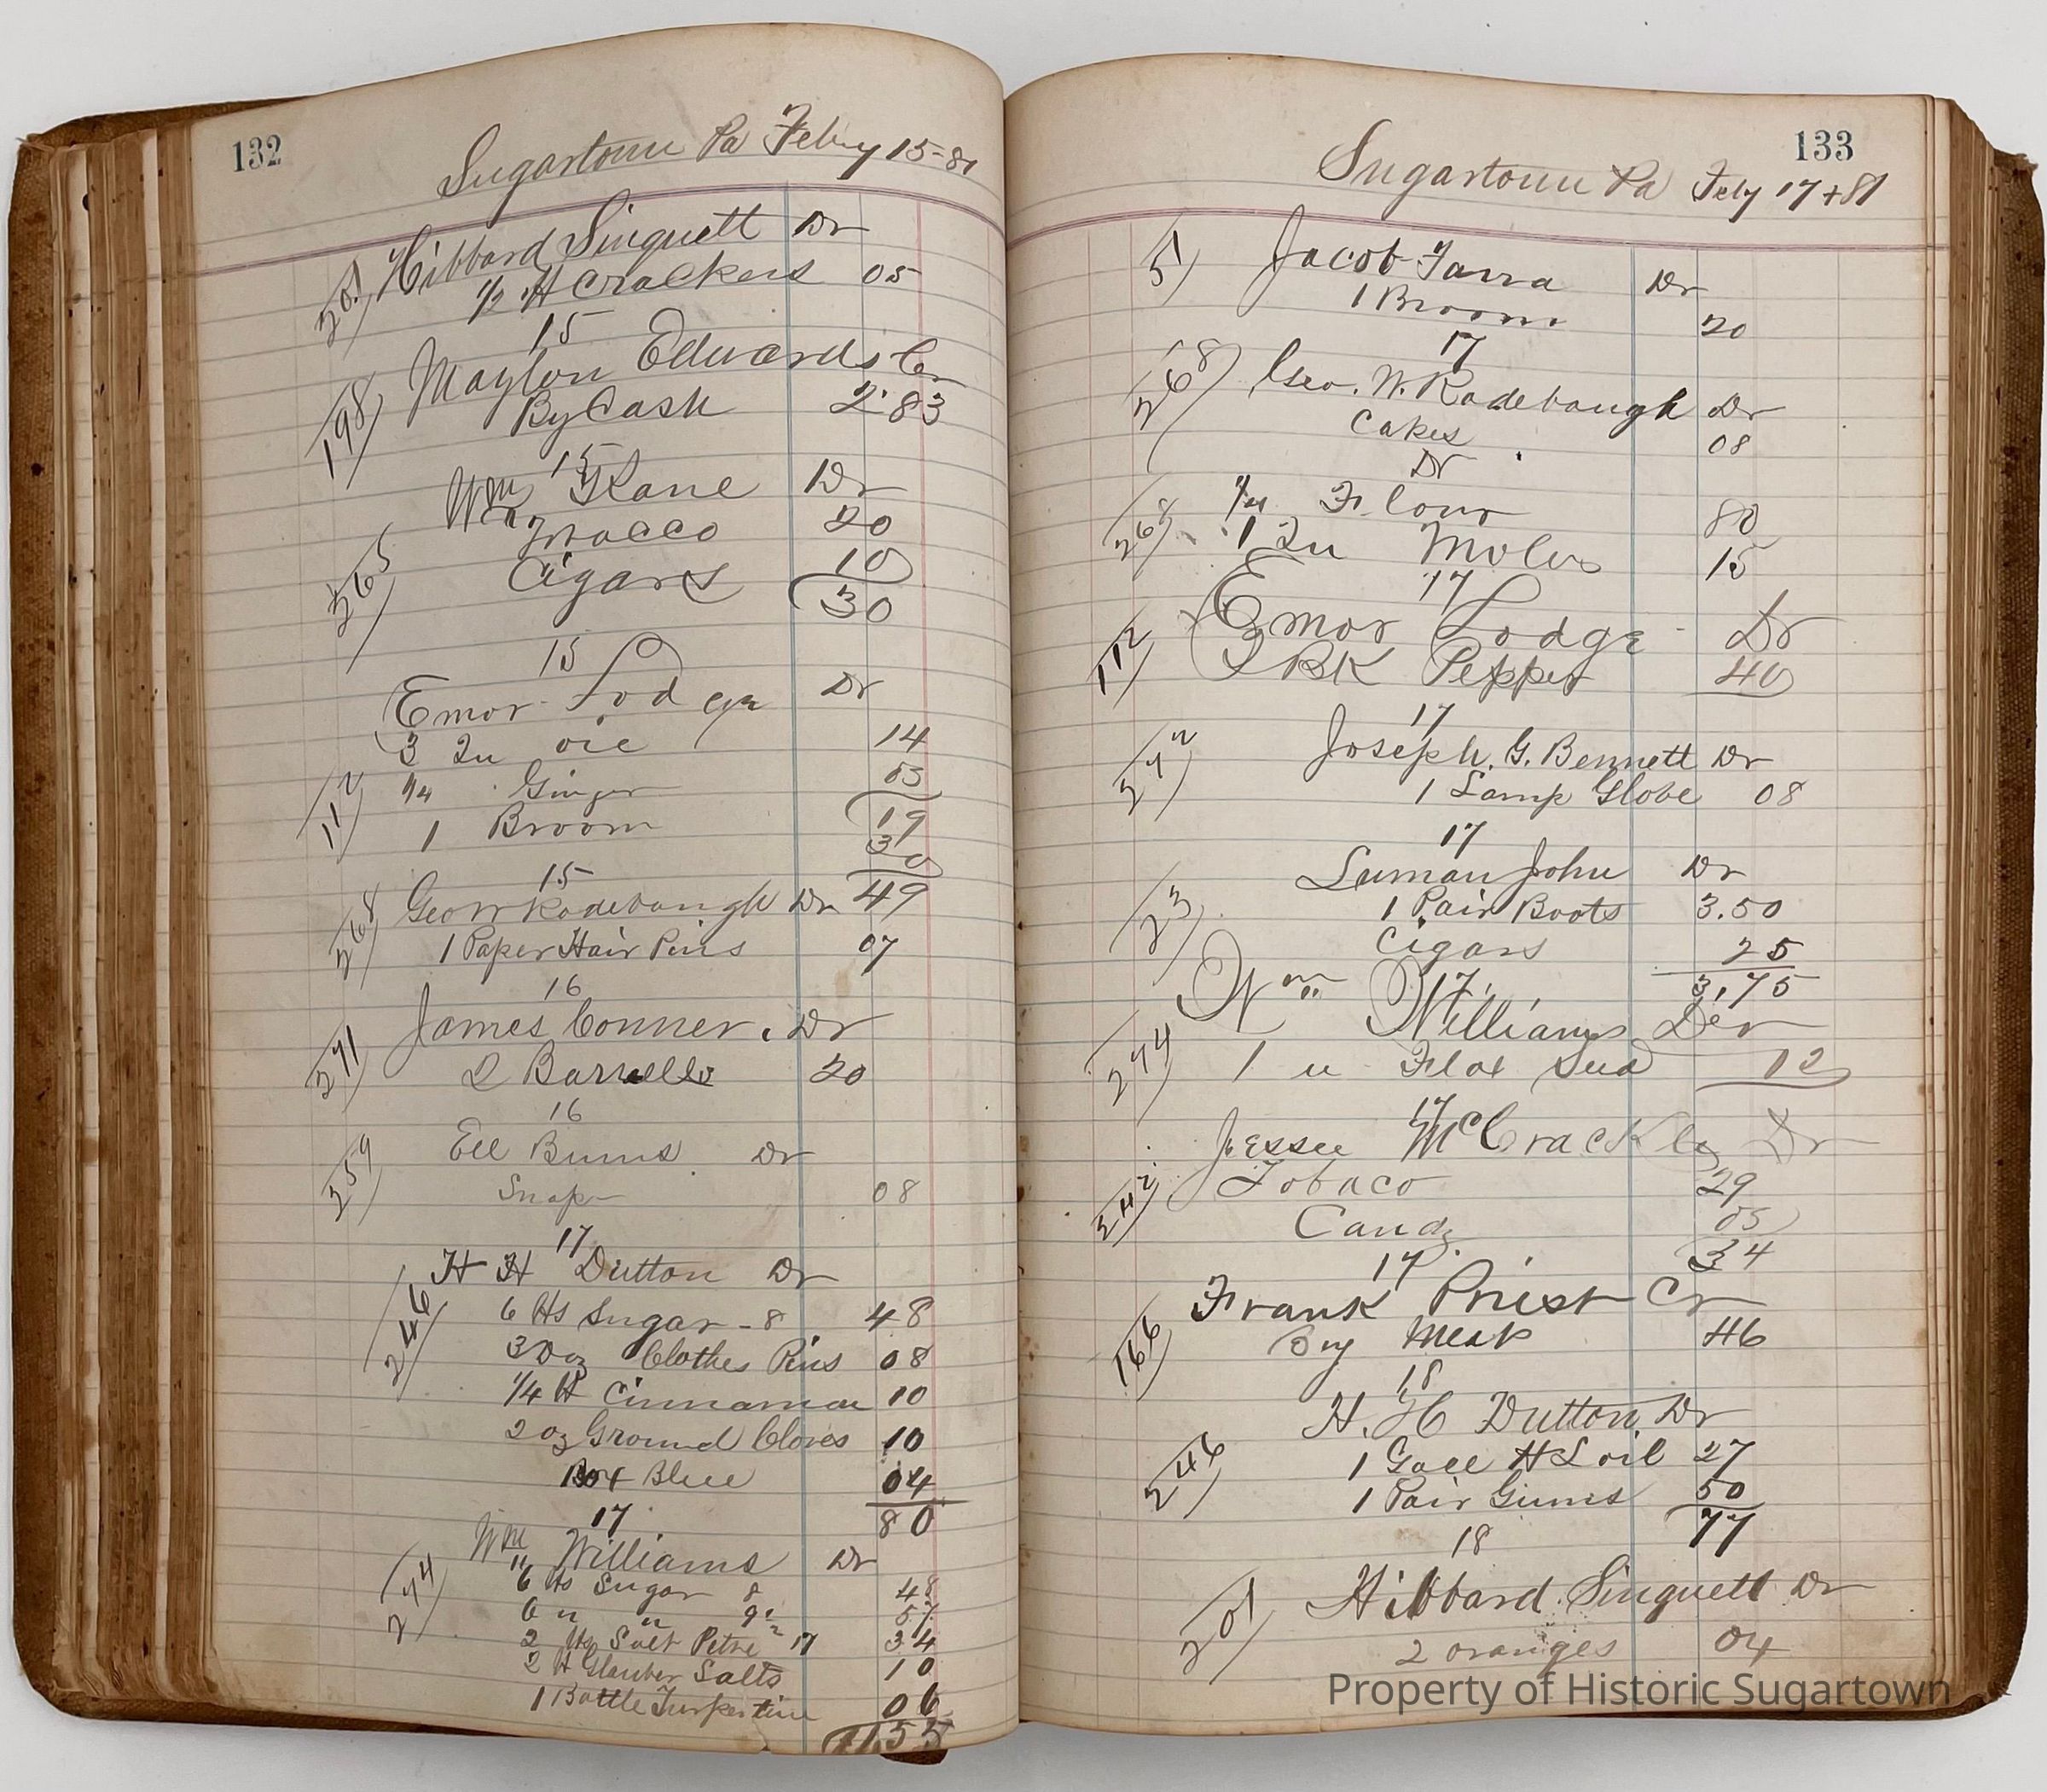 132
Sugartown Pa Feby 15-81
201 Hibbard Singuett Dr
1/2 H Crackers 05
15
198 Maylon Edwards Cr
By Cash 2.83
15
Wm Kane Dr
20
265 Cigars 10
30
15
Emor Lodge Dr
3 Qu oil 14
112 1/4 Ginger 05
19
1 Broom 30
15
49
268 Geo W Rodebaugh Dr
1 Paper Hair Pins 07
16
271 James Conner Dr
2 Barrells 20
16
259 Ell Burns Dr
Snaps 08
17
H H Dutton Dr
246 6 Hs Sugar - 8 48
3 Doz Clothes Pins 08
1/4 H Cinnamon 10
2 oz Ground Cloves 10
Box Blue 04
17 80
Wm Williams Dr
274 6 Hs Sugar 8 48
6 " " 9 1/2 57
2 Hs Salt Petre 17 34
2 H Glauber Salts 10
1 Bottle Turpentine 06
1.55
133
Sugartown Pa Feby 17 + 81
51 Jacob Farra Dr
1 Broom 20
17
268 Geo. W. Rodebaugh Dr
Cakes 08
Dr
268 1/4 Flour 80
1 Qu Moles 15
17
112 Emor Lodge Dr
PK Pepper 40
17
272 Joseph. G. Bennett Dr
1 Lamp Globe 08
17
Luman John Dr
23 1 Pair Boots 3.50
Cigars 25
17 3.75
Wm Williams Dr
274 1 u Flax Seed 12
17
Jessee McCrackle Dr
242 Tobaco 29
Candy 05
17 34
Frank Priest Cr
166 By Meat 46
18
H. H Dutton Dr
246 1 Gall H L oil 27
1 Pair Gums 50
18 77
201 Hibbard Singuett Dr
2 oranges 04
Property of Historic Sugartown